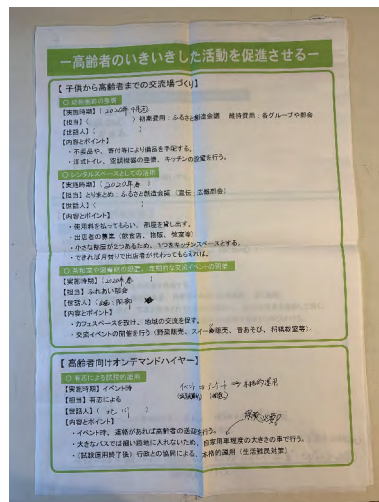 ー高齢者のいきいきした活動を促進させるー
【 子供から高齢者までの交流場づくり】
【実施時期】( 2020年
【担当】(        ) 初期費用:ふるさと創造会議  維持費用:各グループや部会
【世話人】(      )
【内容とポイント】
・不要品や、寄付等により備品を手配する。
・洋式トイレ、空調機器の整備、キッチンの設置を行う。
○ レンタルスペースとしての活用
【実施時期】( 2020年春 )
【担当】とりまとめ:ふるさと創造会議 (宣伝:広報部会)
【世話人】(      )
【内容とポイント】
・使用料を払ってもらい、部屋を貸し出す。
・出店者の募集(飲食店、物販、教室等)
・小さな部屋が2つあるため、1つをキッチンスペースとする。
・できれば月替りで出店者が代わってもらえれば。
定期的な交流イベントの開催
【実施時期】( 2020年春 )
【担当】ふれあい部会
【世話人】(
【内容とポイント】
・カフェスペースを設け、地域の交流を促す。
・交流イベントの開催を行う(野菜販売、スイーツ販売、昔あそび、将棋教室等)
【 高齢者向けオンデマンドハイヤー】
○ 有志による試験的運用
【実施時期】イベント時
イベント ⇒ アンケート ⇒ 本格的運用
【担当】有志による
【世話人】(
【内容とポイント】
・イベント時、連絡があれば高齢者の送迎を行う。
・大きなバスでは細い路地に入れないため、自家用車程度の大きさの車で行う。
・(試験運用終了後)行政との協同による、本格的運用(生活難民対策)